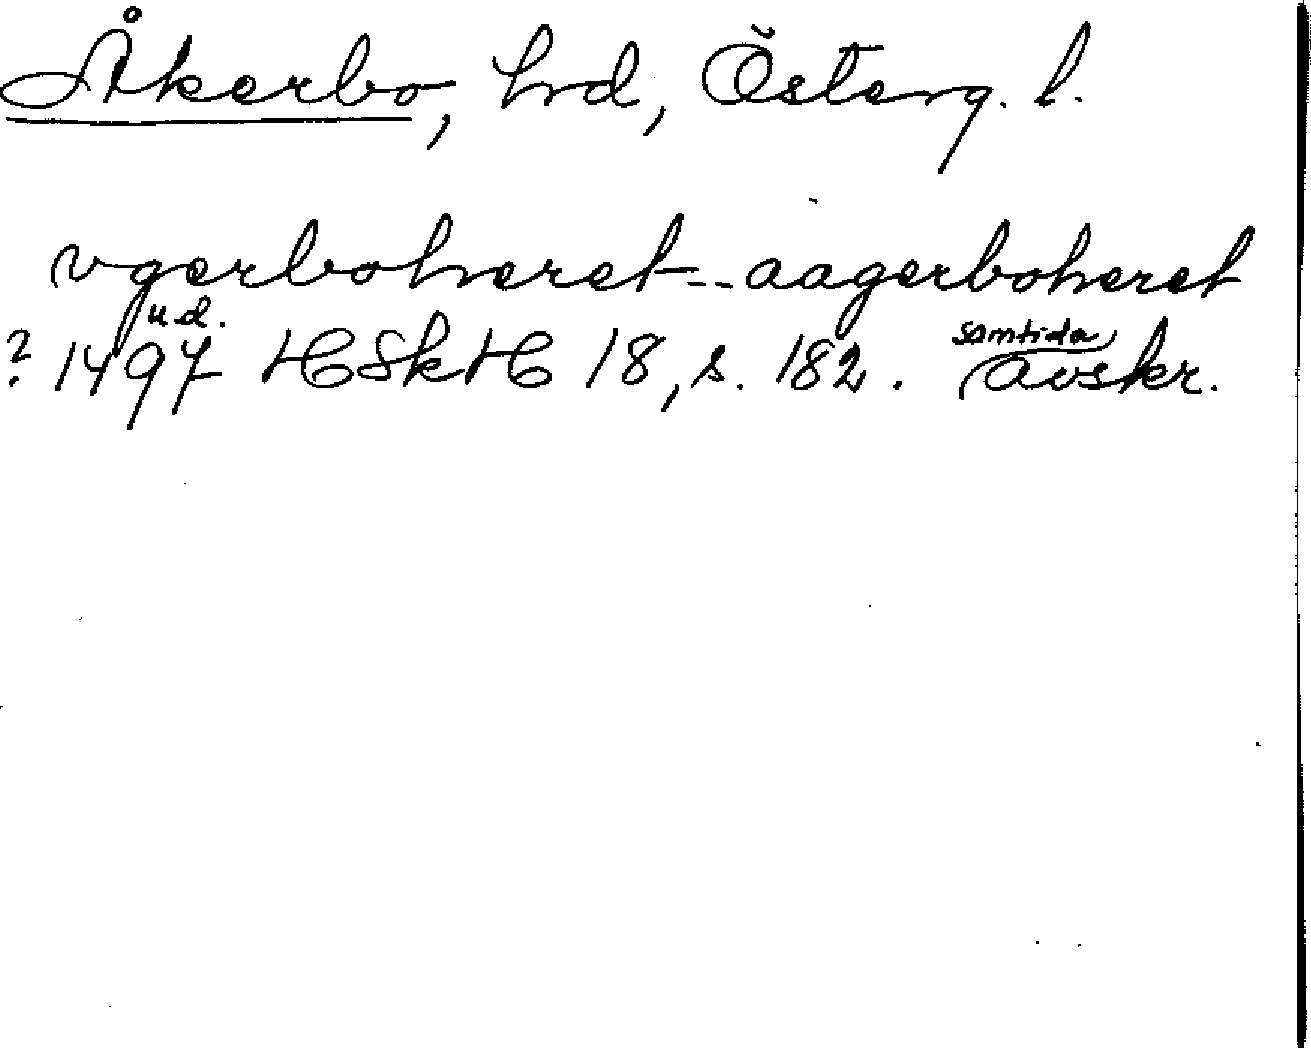 Åkerbo, hrd, Österg. l.
vgerboheret -- aagerboheret
u.d.
? 1497 HSkH 18, s. 182. samtida avskr.